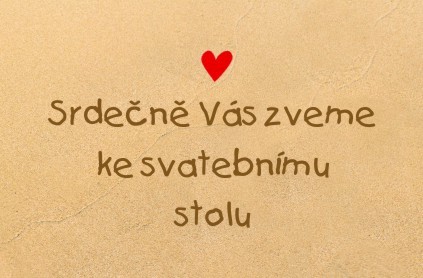 Srdečně Vás zveme
ke svatebnímu
stolu